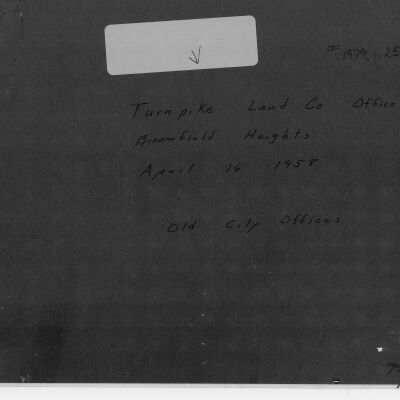 # 1979.1.25
Turnpike Land Co Office
Broomfield Heights
April 16 1958
Old City Offices